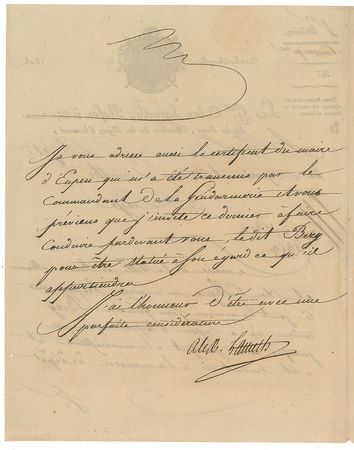 Je vous adresse aussi le certificat du maire
d'Eupen qui m'a été transmis par le
Commandant de la Gendarmerie et vous
préviens que j'invite ce dernier à faire
Conduire pardevant vous, le dit
pour être statué à son egard ce qu'il
appartiendra
J'ai l'honneur d'être avec une
parfaite considération
Alex. Lameth